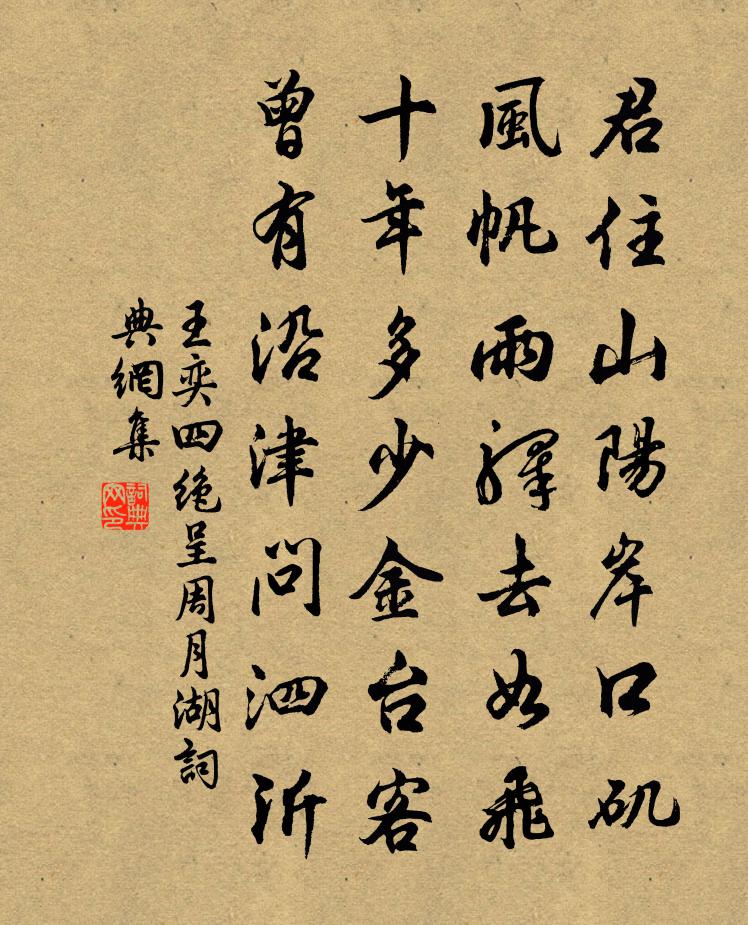 君住山陽岸口矶
風帆兩驛去如飛
十年多少金台客
曾有沿津問泗沂
王奕四絶呈周月湖詞
典網集
詞典
网印